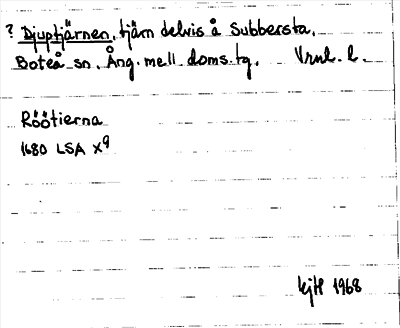 ? Djuptjärnen, tjärn delvis å Subbersta,
Boteå sn. Ång. mell. doms.tg. Vrnl. l.
Röötierna
1680 LSA X9
kjH 1968